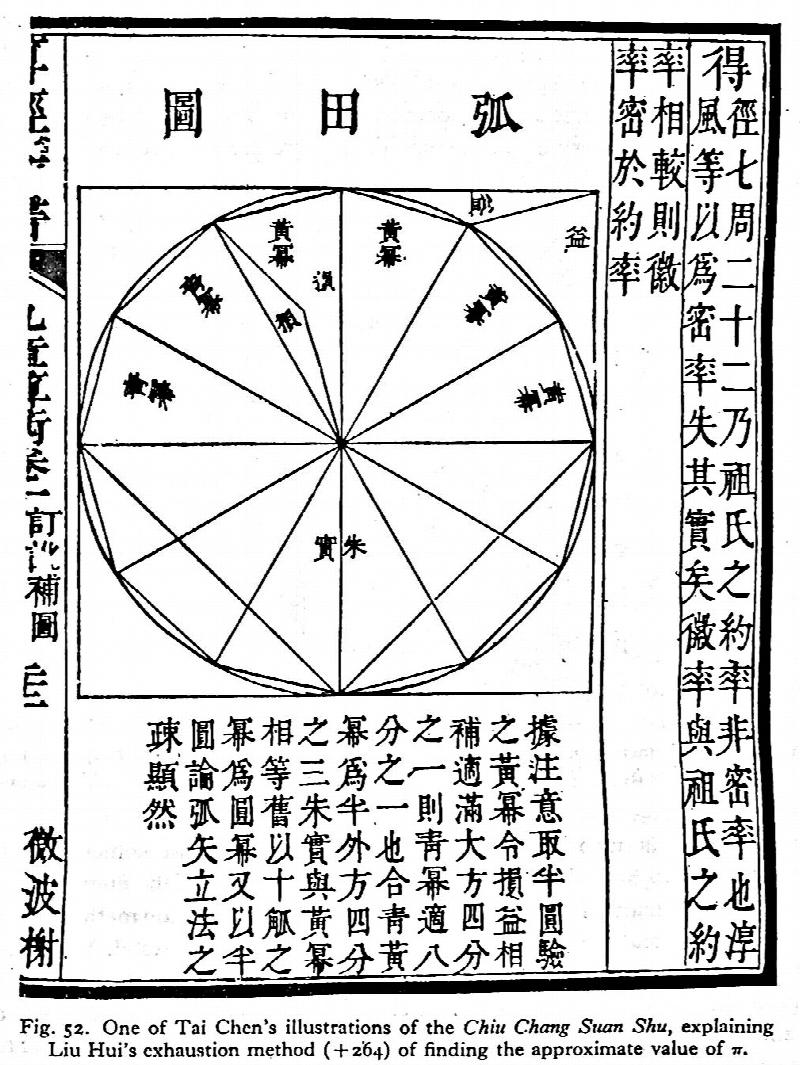 得
徑七周二十二乃祖氏之約率非密率也淳
風等以爲密率失其實矣徽率與祖氏之約
率相較則徽
率密於約率
弧田圖
黃冪
黃冪
益
朱實
據注意取半圓驗
之黃冪令損益相
補適滿大方四分
之一則青冪適八
分之一也合青黃
冪爲半外方四分
之三朱實與黃冪
相等舊以十觚之
冪爲圓冪又以半
圓論弧矢立法之
疎顯然
訂訛補圖
微波榭
Fig. 52. One of Tai Chen's illustrations of the Chiu Chang Suan Shu, explaining
Liu Hui's exhaustion method (+264) of finding the approximate value of π.